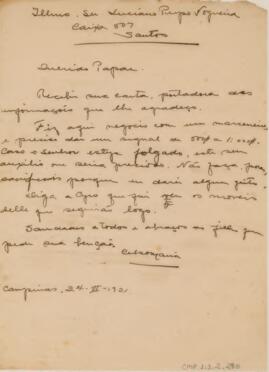 Illmo. Snr Luciano Pupo Nogueira
Caixa 007
Santos
Querido Papae
Recebi sua carta, portadora das
informações que lhe agradeço.
Fiz aqui negocio com um marceneiro
e preciso dar um signal de
Caso o senhor esteja folgado, este seu
auxilio me seria precioso. Não faça, porem,
sacrificios porque eu darei algum geito.
Diga a que que os moveis
delle que seguirão logo.
Saudades a todos e abraços do filho que
pede sua benção.
Campinas, 24-II-1921
CMP.2.1.2.280